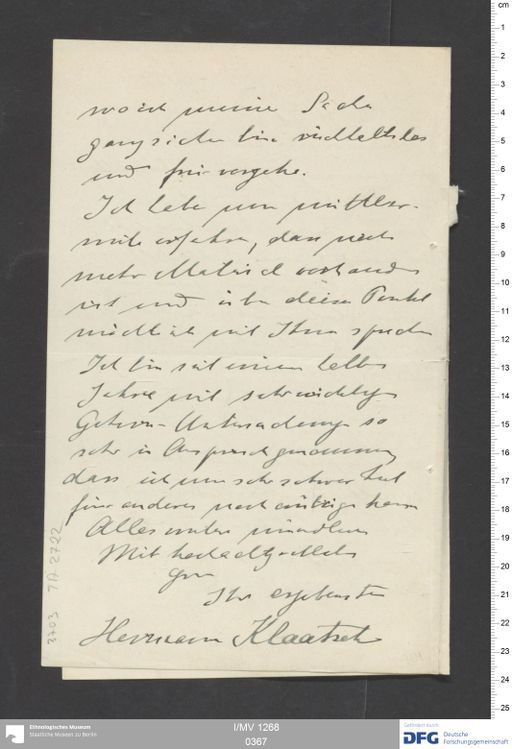 wo ich meine Sache
ganz sicher bin rückhaltslos
und frei vorgehe.
Ich habe nun mittler-
weile erfahren, dass noch
mehr Material vorhanden
ist und über diesen Punkt
möchte ich mit Ihnen sprechen
Ich bin seit einem halben
Jahre mit sehr wichtigen
Gehirn-Untersuchungen so
sehr in Anspruch genommen
dass ich nur sehr schwer Zeit
für anderes noch erübrigen kann
Alles weitere mündlich
Mit hochachtungsvollem
Gruss
Ihr ergebenster
Hermann Klaatsch
3703 7A 2722
cm
1
2
3
4
5
6
7
8
9
10
11
12
13
14
15
16
17
18
19
20
21
22
23
24
25
Ethnologisches Museum
Staatliche Museen zu Berlin
I/MV 1268
0367
Gefördert durch
DFG Deutsche
Forschungsgemeinschaft